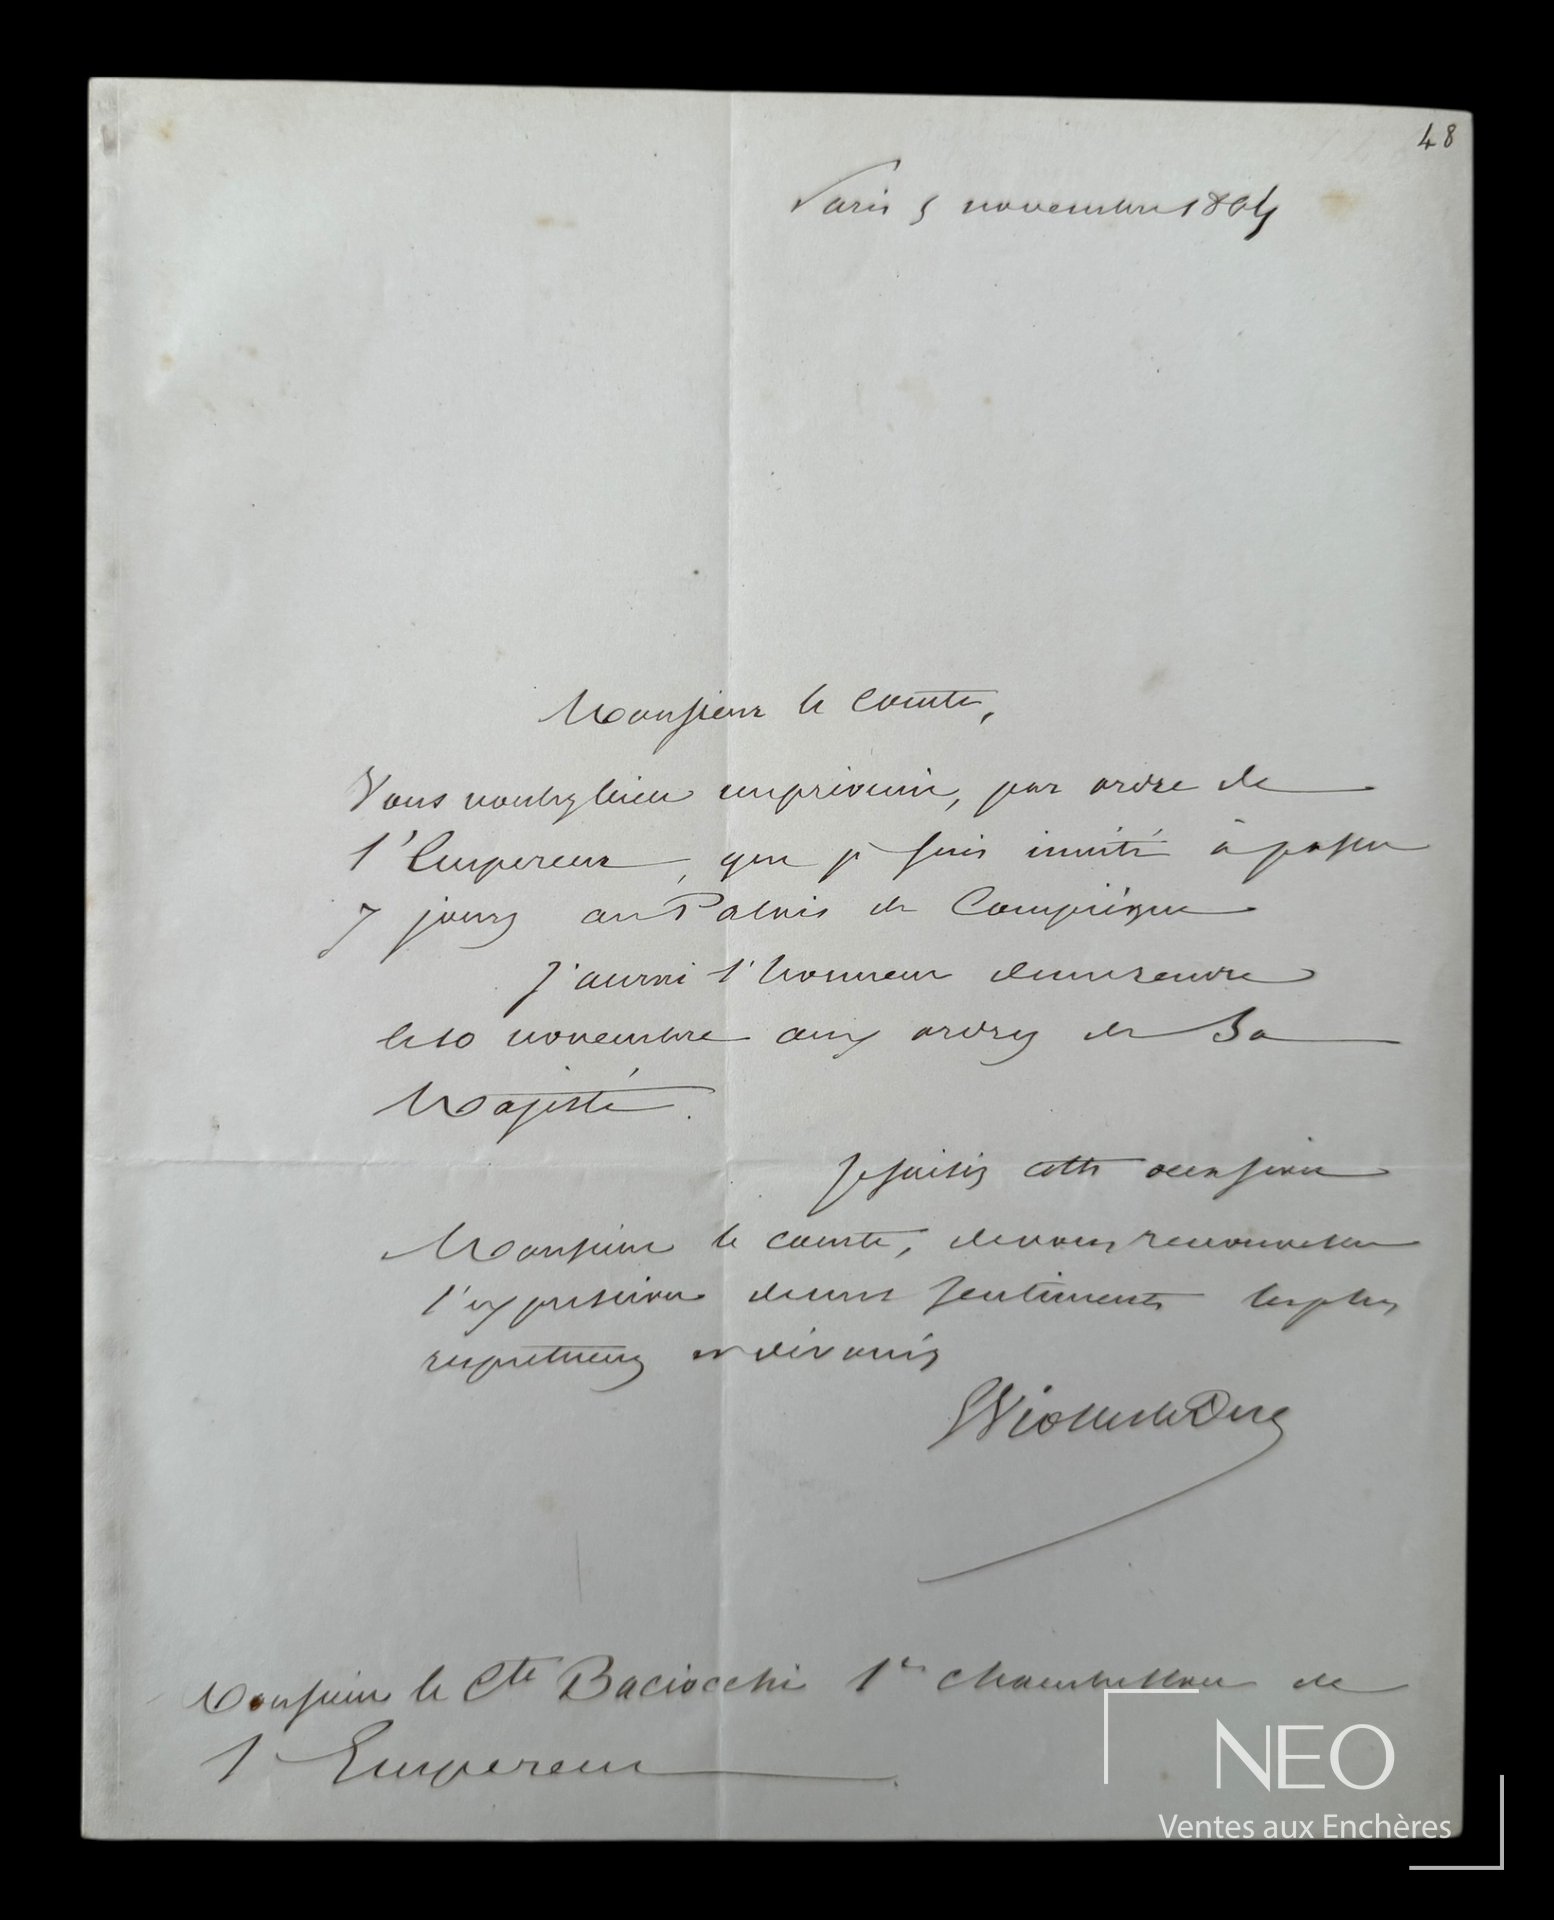 48
Paris 5 novembre 1864
Monsieur le comte,
Vous voulez bien me prévenir, par ordre de
l'Empereur, que je suis invité à passer
7 jours au Palais de Compiègne
J'aurai l'honneur de me rendre
le 10 novembre aux ordres de Sa
Majesté.
Je saisis cette occasion
Monsieur le comte, de vous renouveller
l'expression de mes sentiments les plus
respectueux et dévoués
EViolletleDuc
Monsieur le Cte Baciocchi 1er chambellan de
l'Empereur
NEO
Ventes aux Enchères